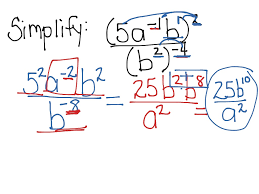 Simplify: (5a⁻¹b)² / (b²)⁻⁴
5²a⁻²b² / b⁻⁸ = 25b²b⁸ / a² = 25b¹⁰ / a²